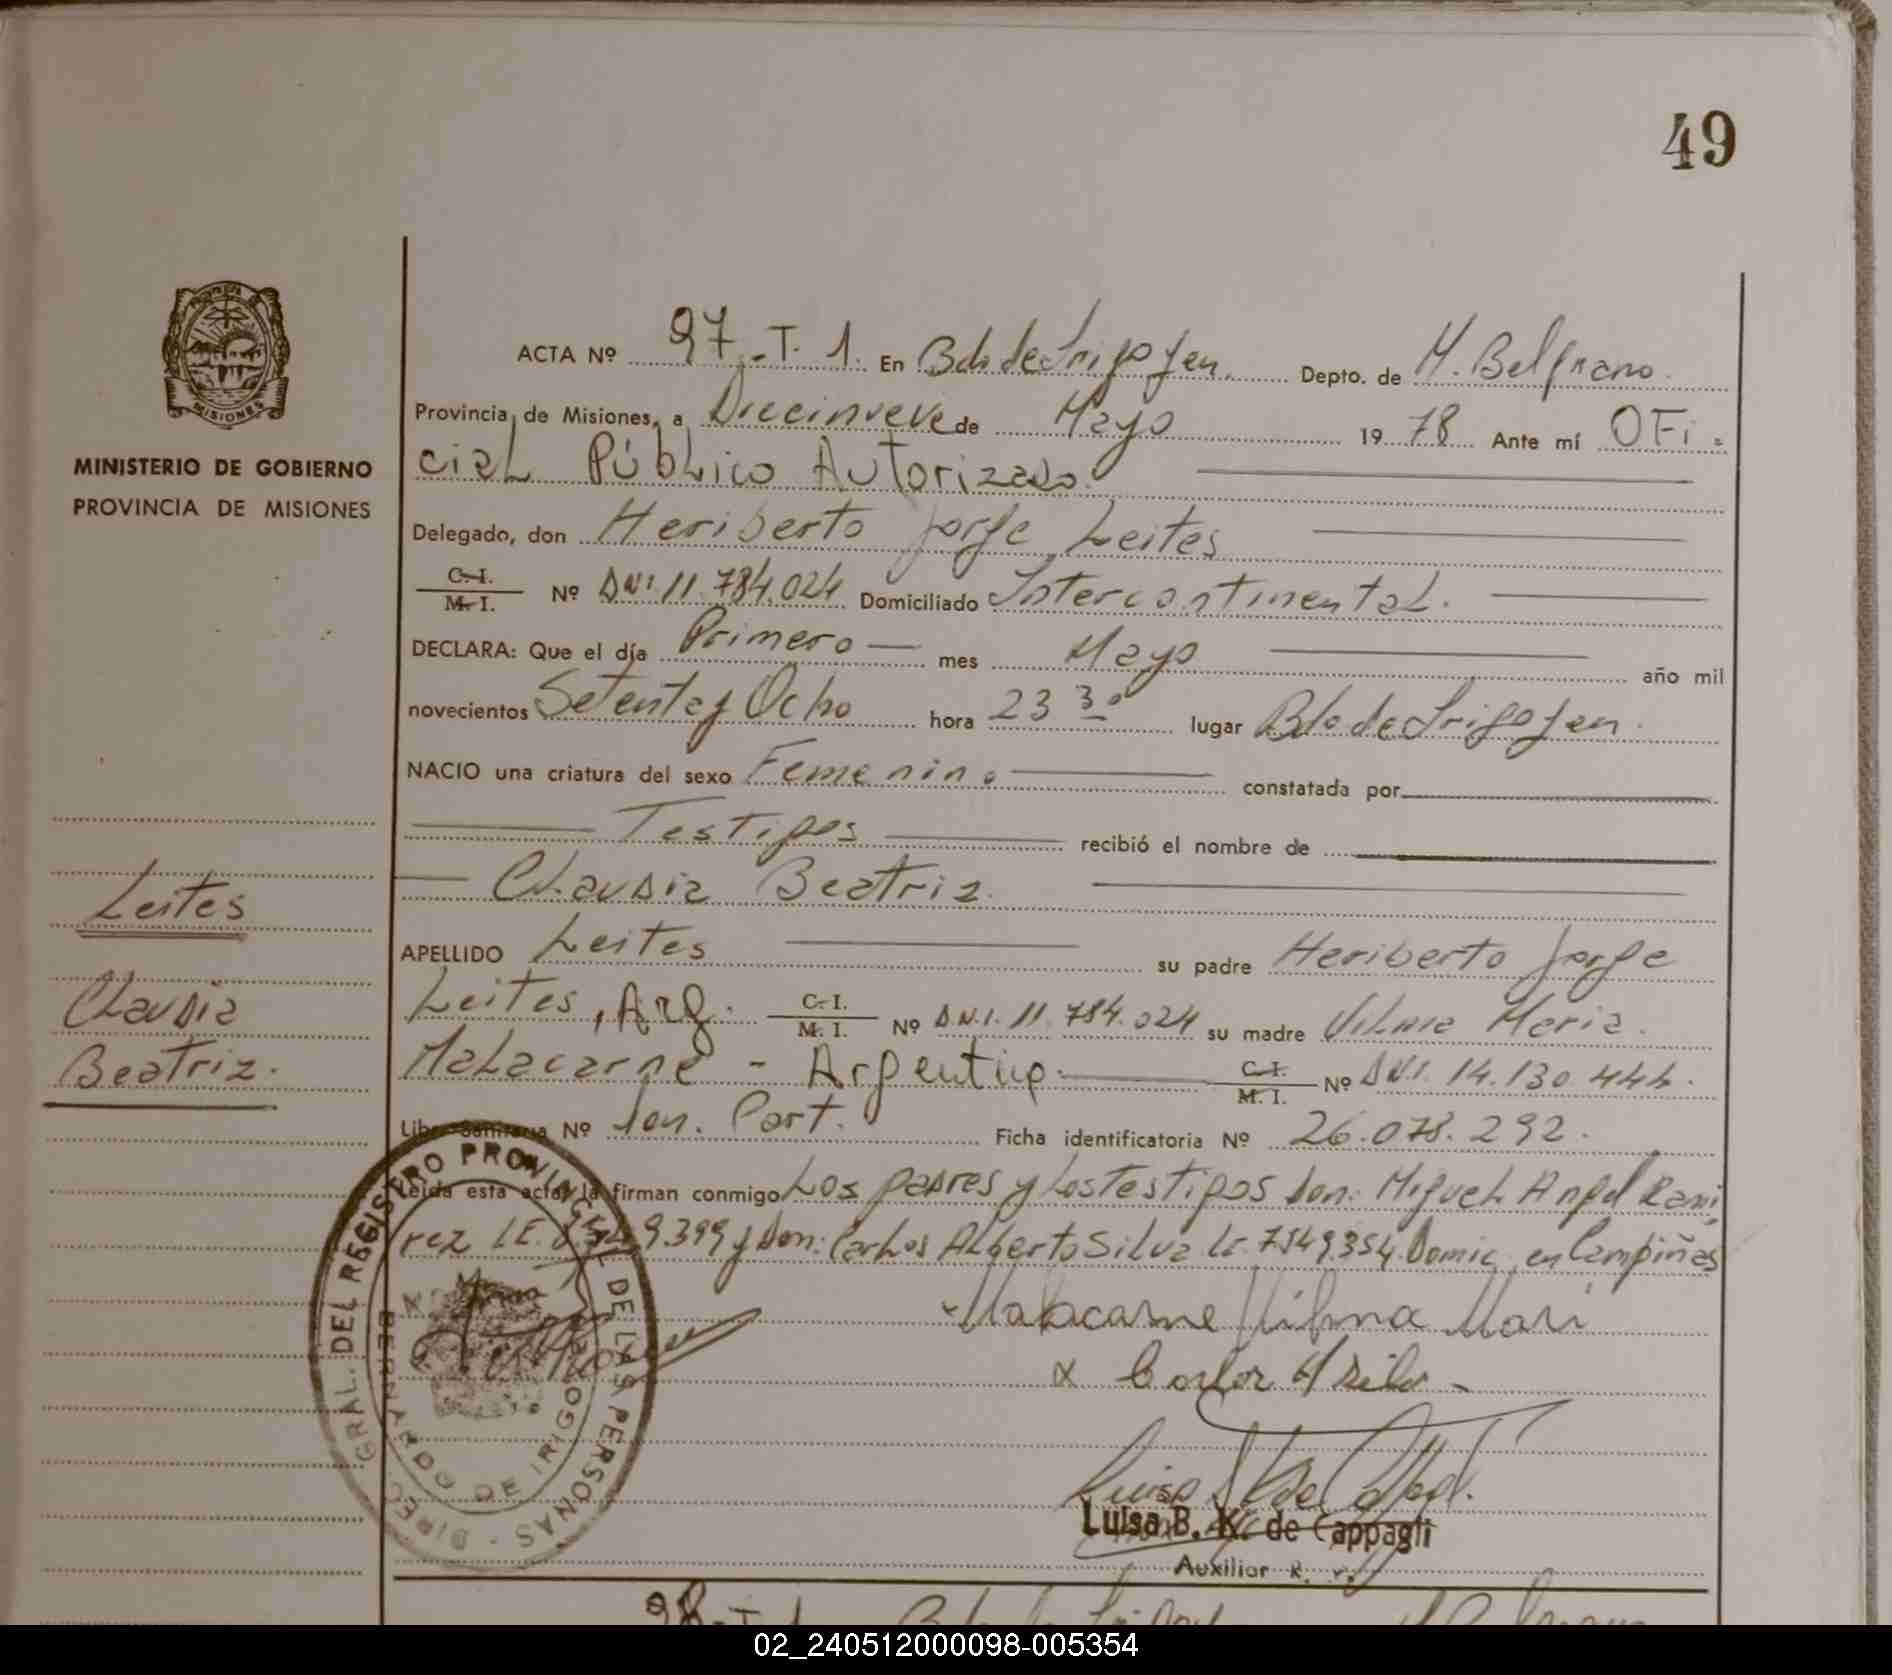 49
MISIONES
MINISTERIO DE GOBIERNO
PROVINCIA DE MISIONES
Leites
Claudia
Beatriz.
ACTA Nº 97-T. 1. En Bdo de Irigoyen. Depto. de M. Belgrano.
Provincia de Misiones, a Diecinueve de Mayo 1978 Ante mí OFi-
ciaL PúbLico Autorizado.
Delegado, don Heriberto Jorge Leites
C. I. / M. I. Nº DNI 11.784.024 Domiciliado IntercontinentaL.
DECLARA: Que el día Primero mes Mayo año mil
novecientos Setenta y Ocho hora 23 30 lugar Bdo de Irigoyen.
NACIO una criatura del sexo Femenino constatada por
Testigos recibió el nombre de
CLaudia Beatriz.
APELLIDO Leites su padre Heriberto Jorge
Leites, Arg. C. I. / M. I. Nº D.N.I. 11.784.024 su madre Vilma Maria.
MaLacarne - Argentina. C. I. / M. I. Nº DNI. 14.130.444.
Libr. Sanitaria Nº Con. Part. Ficha identificatoria Nº 26.078.292.
Leida esta acta, la firman conmigo Los padres y Los testigos Don: MigueL AngeL Rami
rez LE. 9.399 y Don: CarLos ALberto SiLva LE. 7549354. Domic. en Campiñas
Malacarne Vilma Mari
x Carlos A Silva -
Luisa B. K. de Cappagli
Auxiliar R. P.
DIREC. GRAL. DEL REGISTRO PROVINCIAL DE LAS PERSONAS -
BERNARDO DE IRIGOYEN
98-T 1
02_240512000098-005354